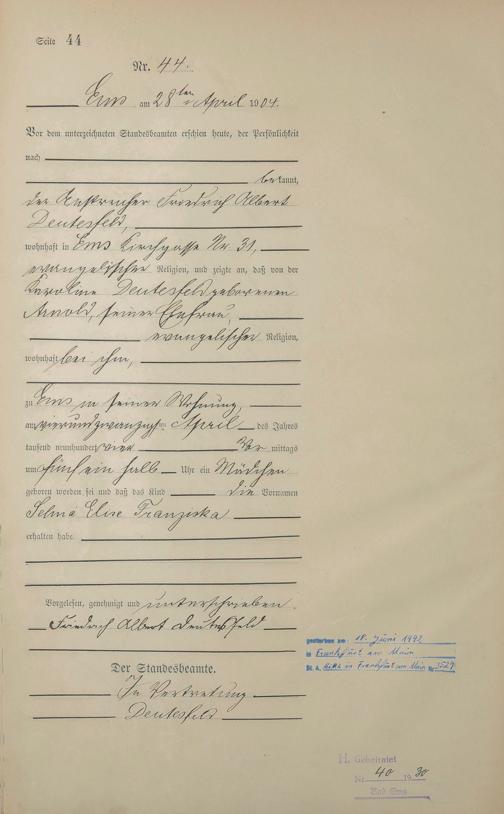 Seite 44
Nr. 44.
Ems am 28ten April 1904.
Vor dem unterzeichneten Standesbeamten erschien heute, der Persönlichkeit
nach
bekannt,
der Anstreicher Friedrich Albert
Deutesfeld,
wohnhaft in Ems Kirchgasse Nr. 31,
evangelischer Religion, und zeigte an, daß von der
Karoline Deutesfeld geborenen
Arnold, seiner Ehefrau,
evangelischer Religion,
wohnhaft bei ihm,
zu Ems in seiner Wohnung,
am vierundzwanzigsten April des Jahres
tausend neunhundert vier Vor mittags
um fünf ein halb Uhr ein Mädchen
geboren worden sei und daß das Kind die Vornamen
Selma Elise Franziska
erhalten habe.
Vorgelesen, genehmigt und unterschrieben.
Friedrich Albert Deutesfeld
Der Standesbeamte.
In Vertretung
Deutesfeld
gestorben am: 18. Juni 1992
in Frankfurt am Main
St. A. Mitte in Frankfurt am Main Nr.
H. Geheiratet
Nr. 40 1930
Bad Ems